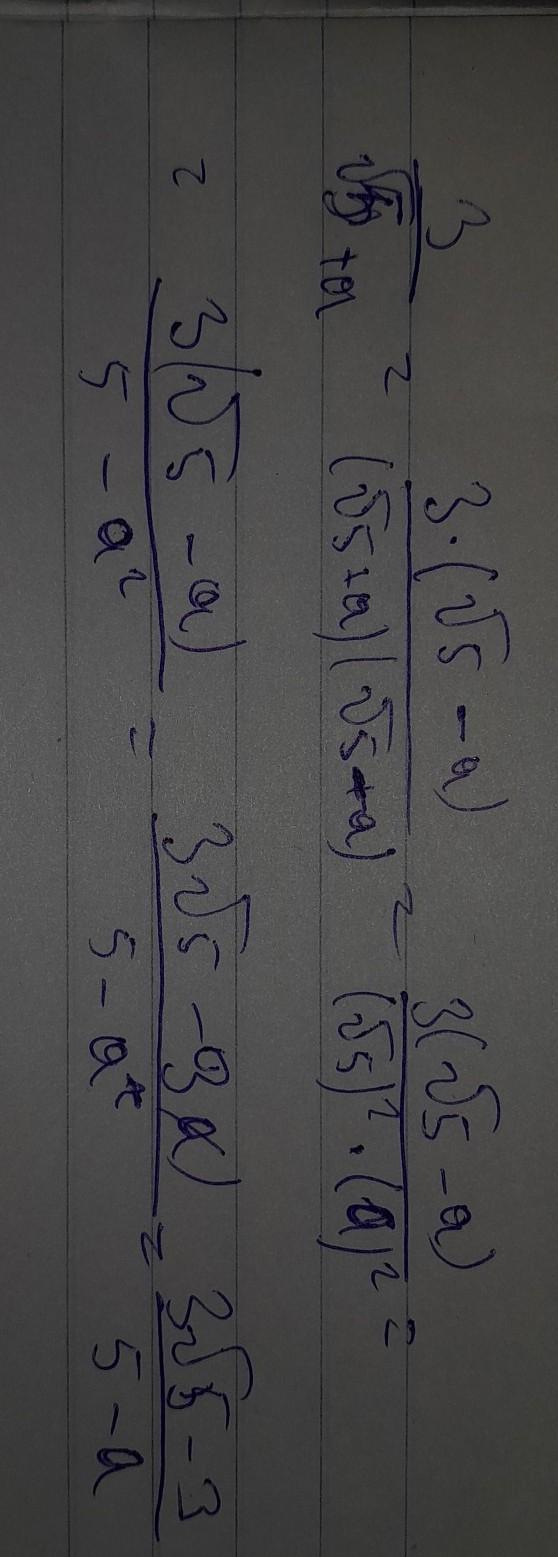 3/(√5 + a) = 3·(√5 - a)/((√5+a)(√5+a)) = 3(√5 - a)/((√5)² · (a)²) =
= 3(√5 - a)/(5 - a²) = (3√5 - 3a)/(5 - a²) = (3√5 - 3)/(5 - a)